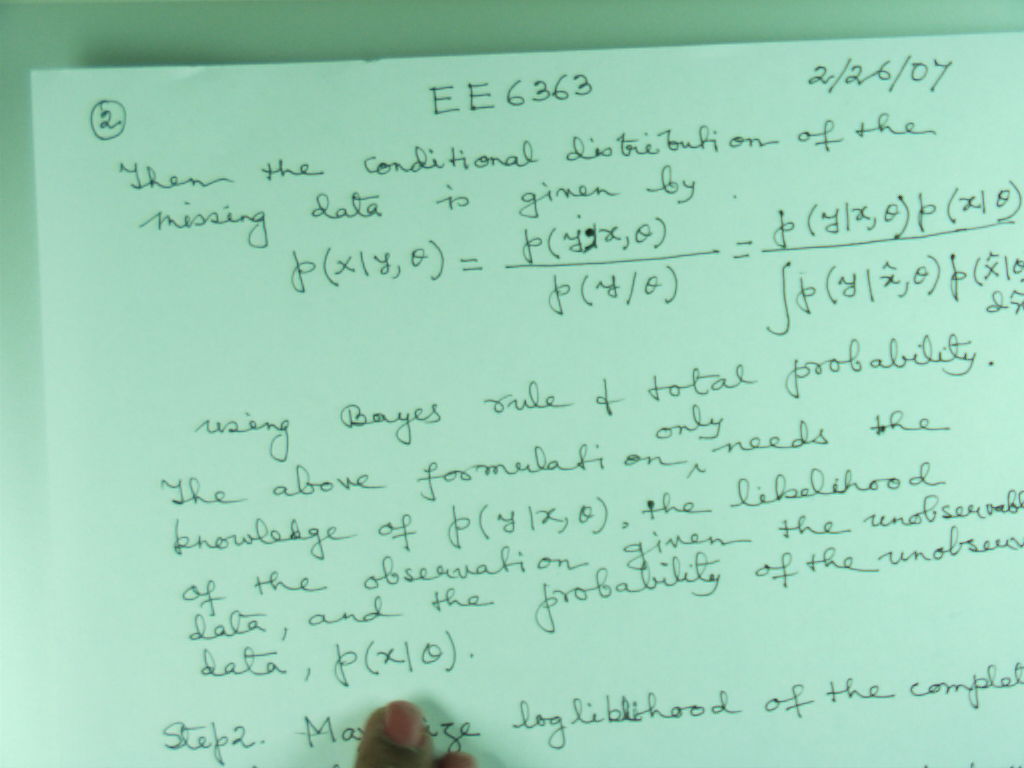 ② EE 6363 2/26/07
Then the conditional distribution of the
missing data is given by
p(x|y, θ) = p(y,x,θ) / p(y/θ) = p(y|x,θ) p(x|θ) / ∫p(y|x̂,θ) p(x̂|θ dx̂
using Bayes rule & total probability.
The above formulation only needs the
knowledge of p(y|x,θ), the likelihood
of the observation given the unobservabl
data, and the probability of the unobserv
data, p(x|θ).
Step 2. loglikelihood of the complet